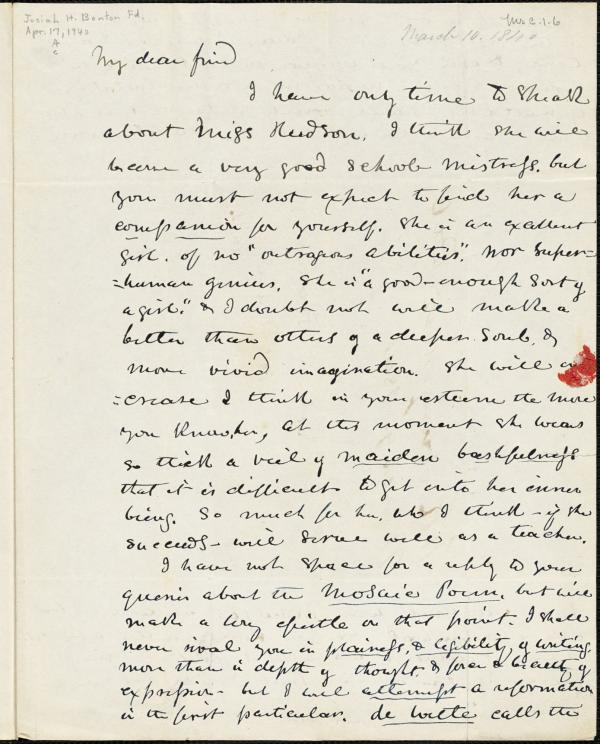 Josiah H. Benton Fd.
Apr. 17, 1940
A
c
Ms. C. 1. 6
March 10. 1840
My dear friend
I have only time to speak
about Miss Hudson. I think she will
become a very good School mistress. but
you must not expect to find her a
companion for yourself. She is an excellent
girl. of no "outrageous abilities". nor super=
=human genius. She is "a good-enough sort of
a girl." & I doubt not will make a
better than others of a deeper Soul, &
more vivid imagination. She will in
=crease I think in your esteem the more
you know her, at this moment she wears
so thick a veil of maiden bashfulness
that it is difficult to get into her inner
being. So much for her, who I think - if she
succeeds - will serve well as a teacher.
I have not space for a reply to your
queries about the Mosaic Poem, but will
make a long epistle on that point. I shall
never rival you in plainess, & legibility of writing,
more than in depth of thought, & force & beauty of
expression - but I will attempt a reformation
in the first particular. de Wette calls the